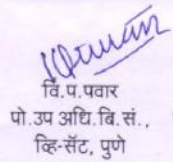 वि.प.पवार
पो.उप अधि.बि.सं.,
व्हि-सॅट, पुणे